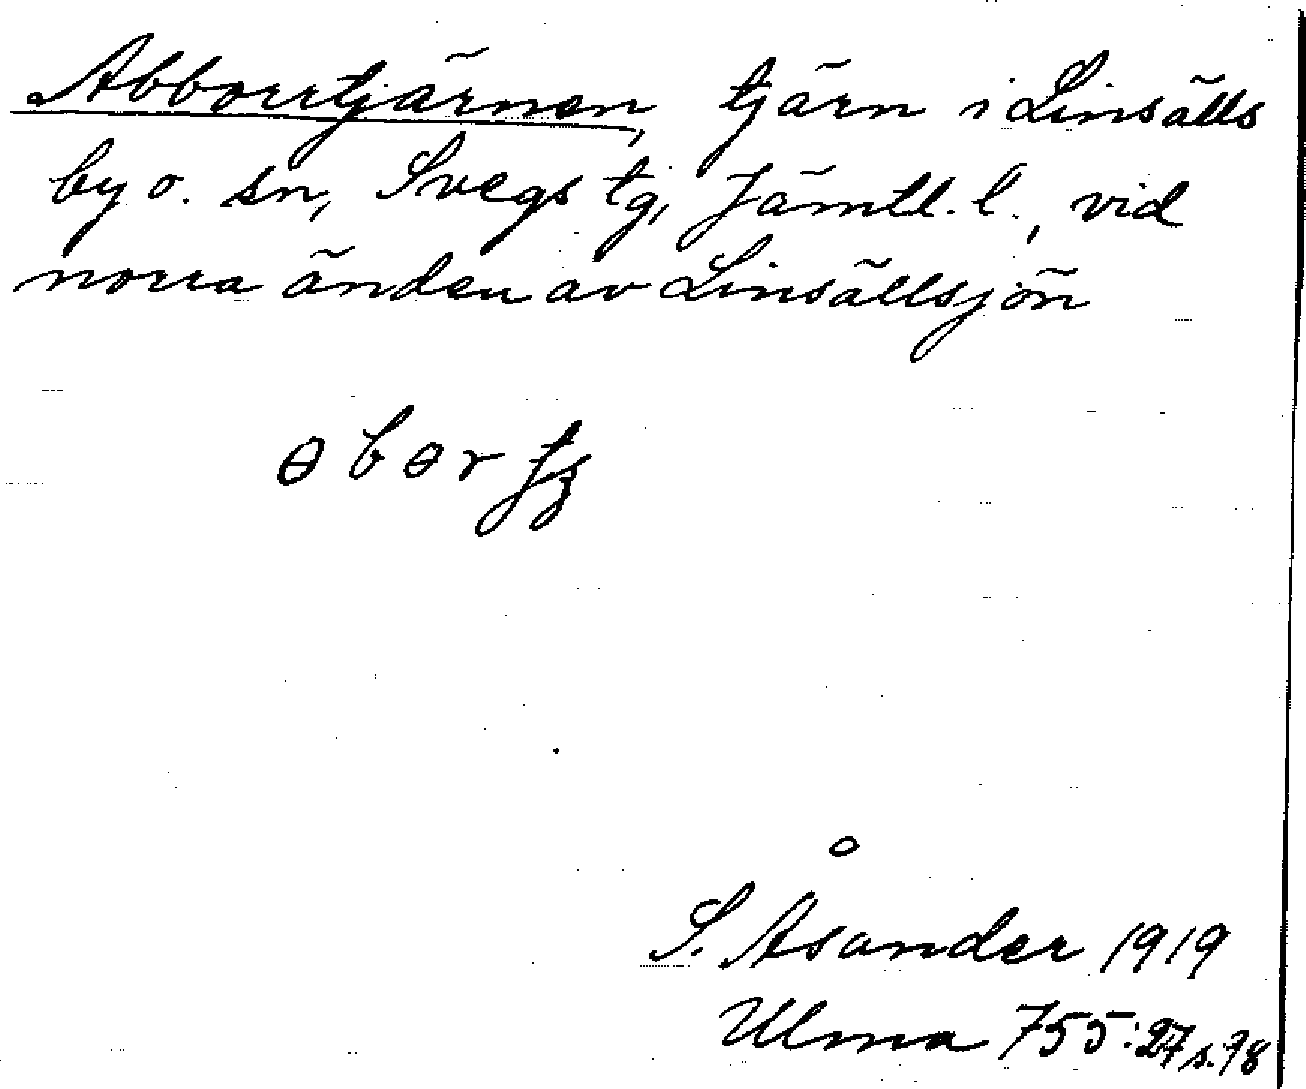 Abborrtjärnen, tjärn i Linsälls
by o. sn, Svegs tg, Jämtl. l., vid
norra änden av Linsällsjön
S. Åsander 1919
Ulma 755:27 s. 78